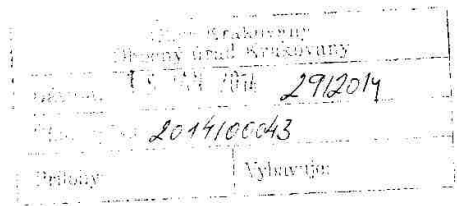 Obec Krakovany
Obecný úrad Krakovany
2014 29/2014
2014/00043
Prílohy: Vybavuje: